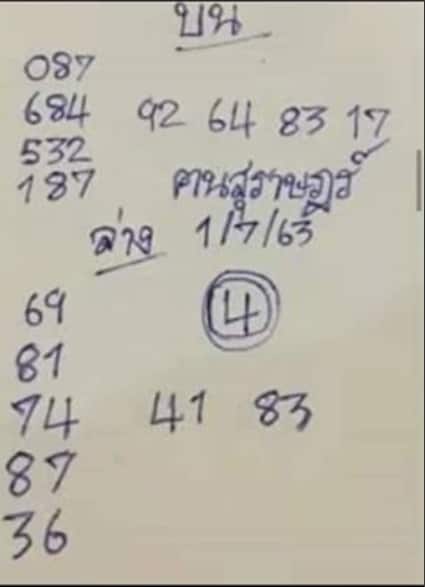 บน
087
684 92 64 83 17
532
187 ฅนสุราษฎร์
ล่าง 1/7/63
69 4
81
74 41 83
87
36